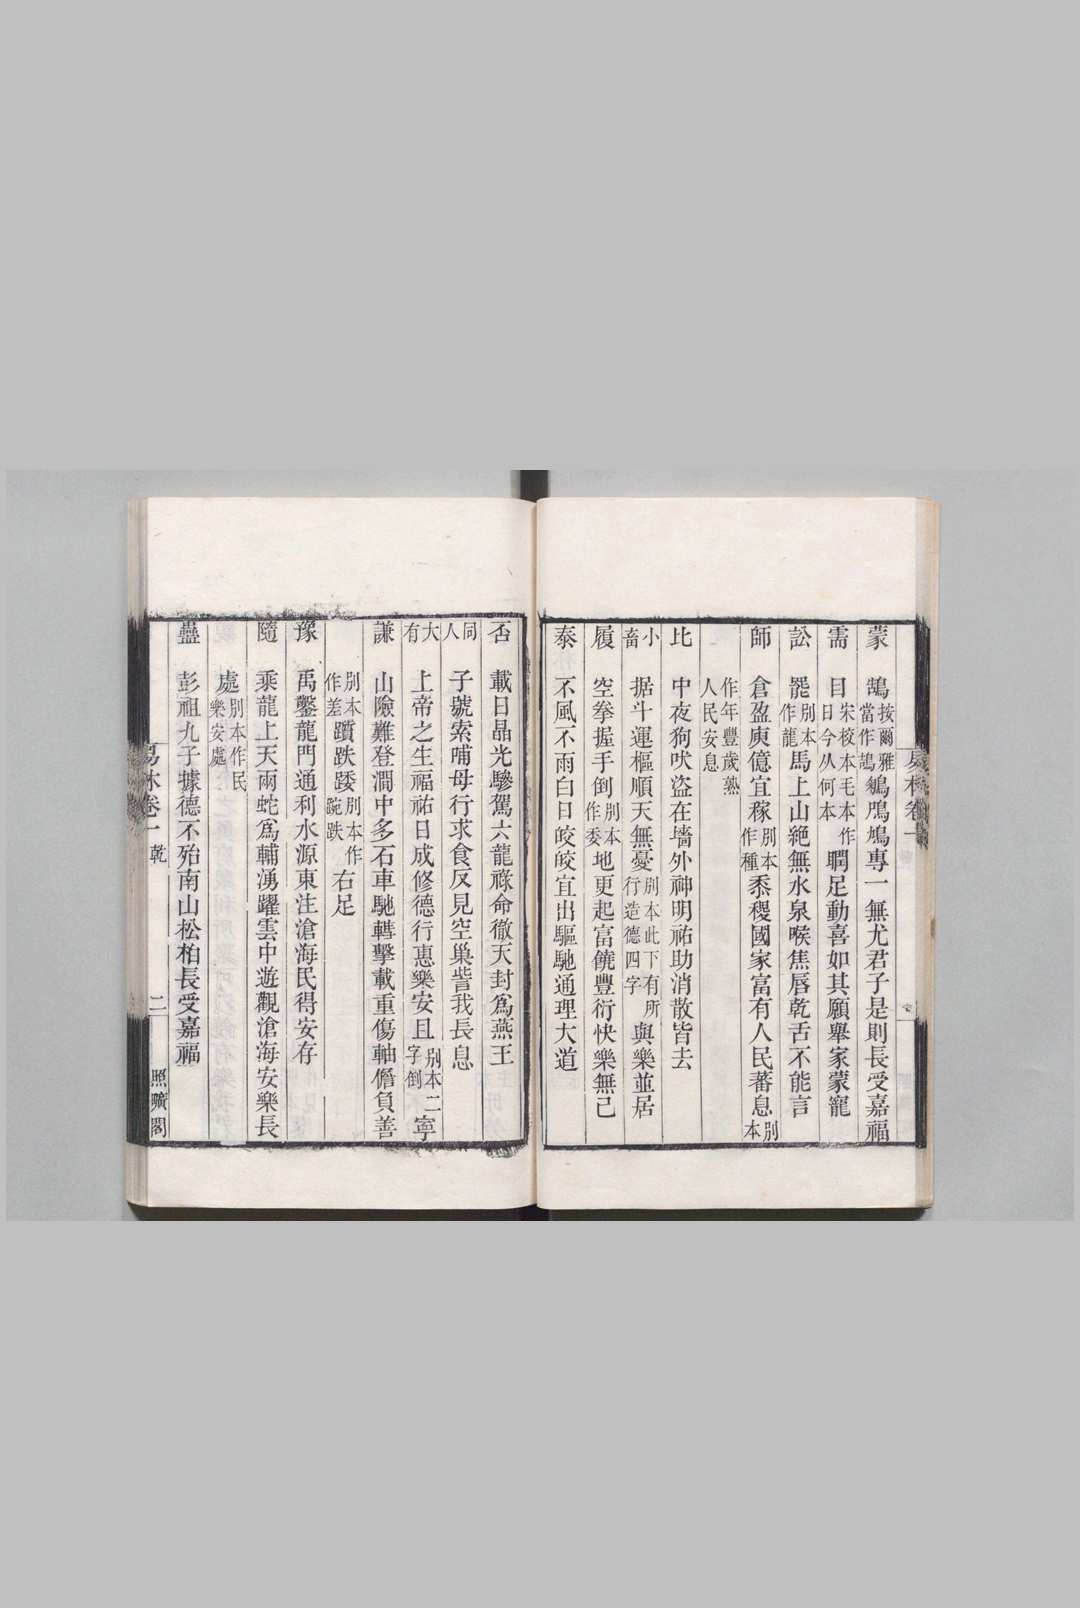 蒙 鵠按爾雅當作鴶鵴鳲鳩專一無尤君子是則長受嘉福
需 目宋校本毛本作日今从何本瞤足動喜如其願舉家蒙寵
訟 罷別本作龍馬上山絶無水泉喉焦唇乾舌不能言
師 倉盈庾億宜稼別本作種黍稷國家富有人民蕃息別本
作年豐歲熟人民安息
比 中夜狗吠盜在墻外神明祐助消散皆去
小畜 据斗運樞順天無憂別本此下有所行造德四字與樂並居
履 空拳握手倒別本作委地更起富饒豐衍快樂無已
泰 不風不雨白日皎皎宜出驅馳通理大道
否 載日晶光驂駕六龍祿命徹天封爲燕王
同人 子號索哺母行求食反見空巢訾我長息
大有 上帝之生福祐日成修德行惠樂安且別本二字倒寧
謙 山險難登澗中多石車馳轊擊載重傷軸儋負善
別本作差躓跌踒別本作踠跌右足
豫 禹鑿龍門通利水源東注滄海民得安存
隨 乘龍上天兩蛇爲輔湧躍雲中遊觀滄海安樂長
處別本作民樂安處
蠱 彭祖九子據德不殆南山松柏長受嘉福
易林卷一 乾 二 照曠閣